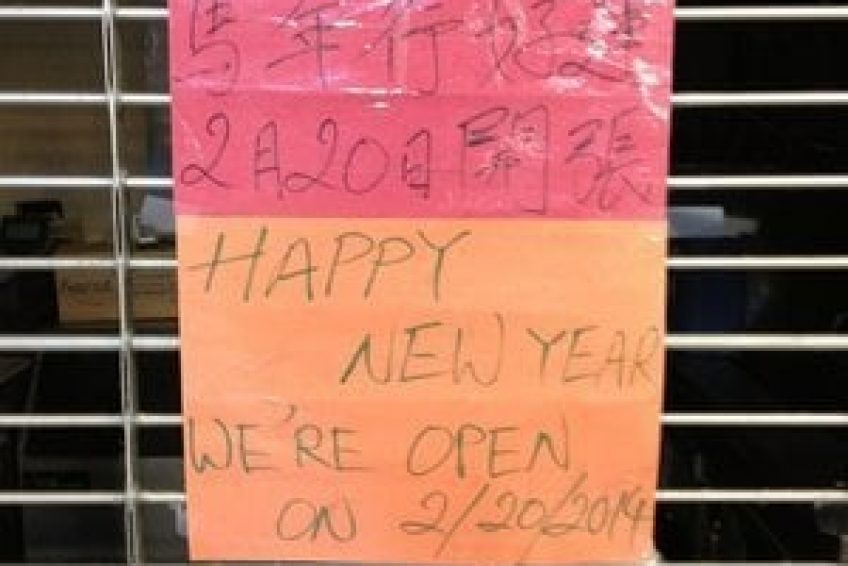 馬年行好運
2月20日開張
HAPPY
NEW YEAR
WE'RE OPEN
ON 2/20/2014